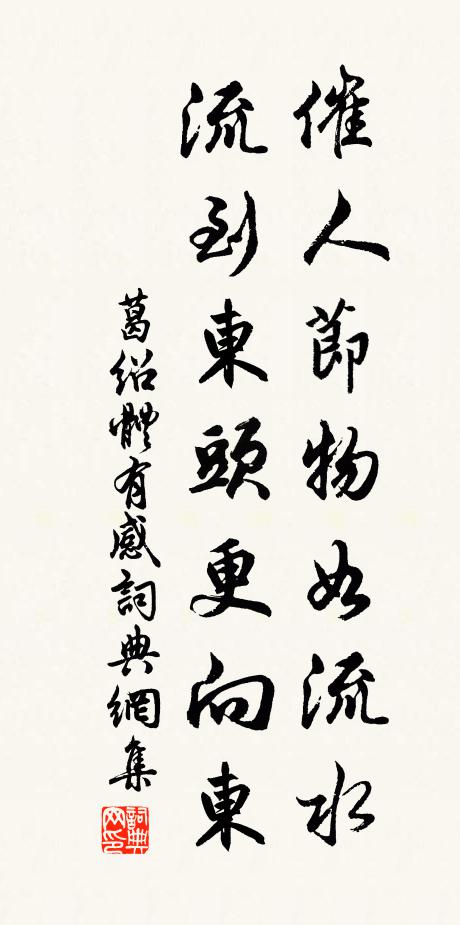 催人節物如流水
流到東頭更向東
葛紹體有感詞典網集
詞典
网印